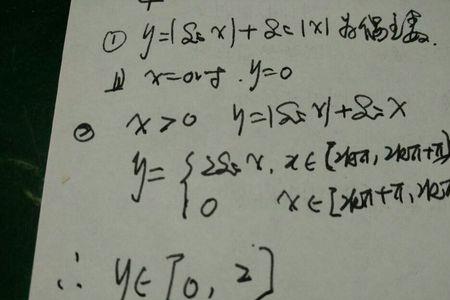 ① y=|sin x|+sin|x| 为偶函数.
x=0时. y=0
② x>0 y=|sin x|+sin x
y={2sin x, x∈[2kπ, 2kπ+π)
0 x∈[2kπ+π, 2kπ
∴ y∈[0, 2]